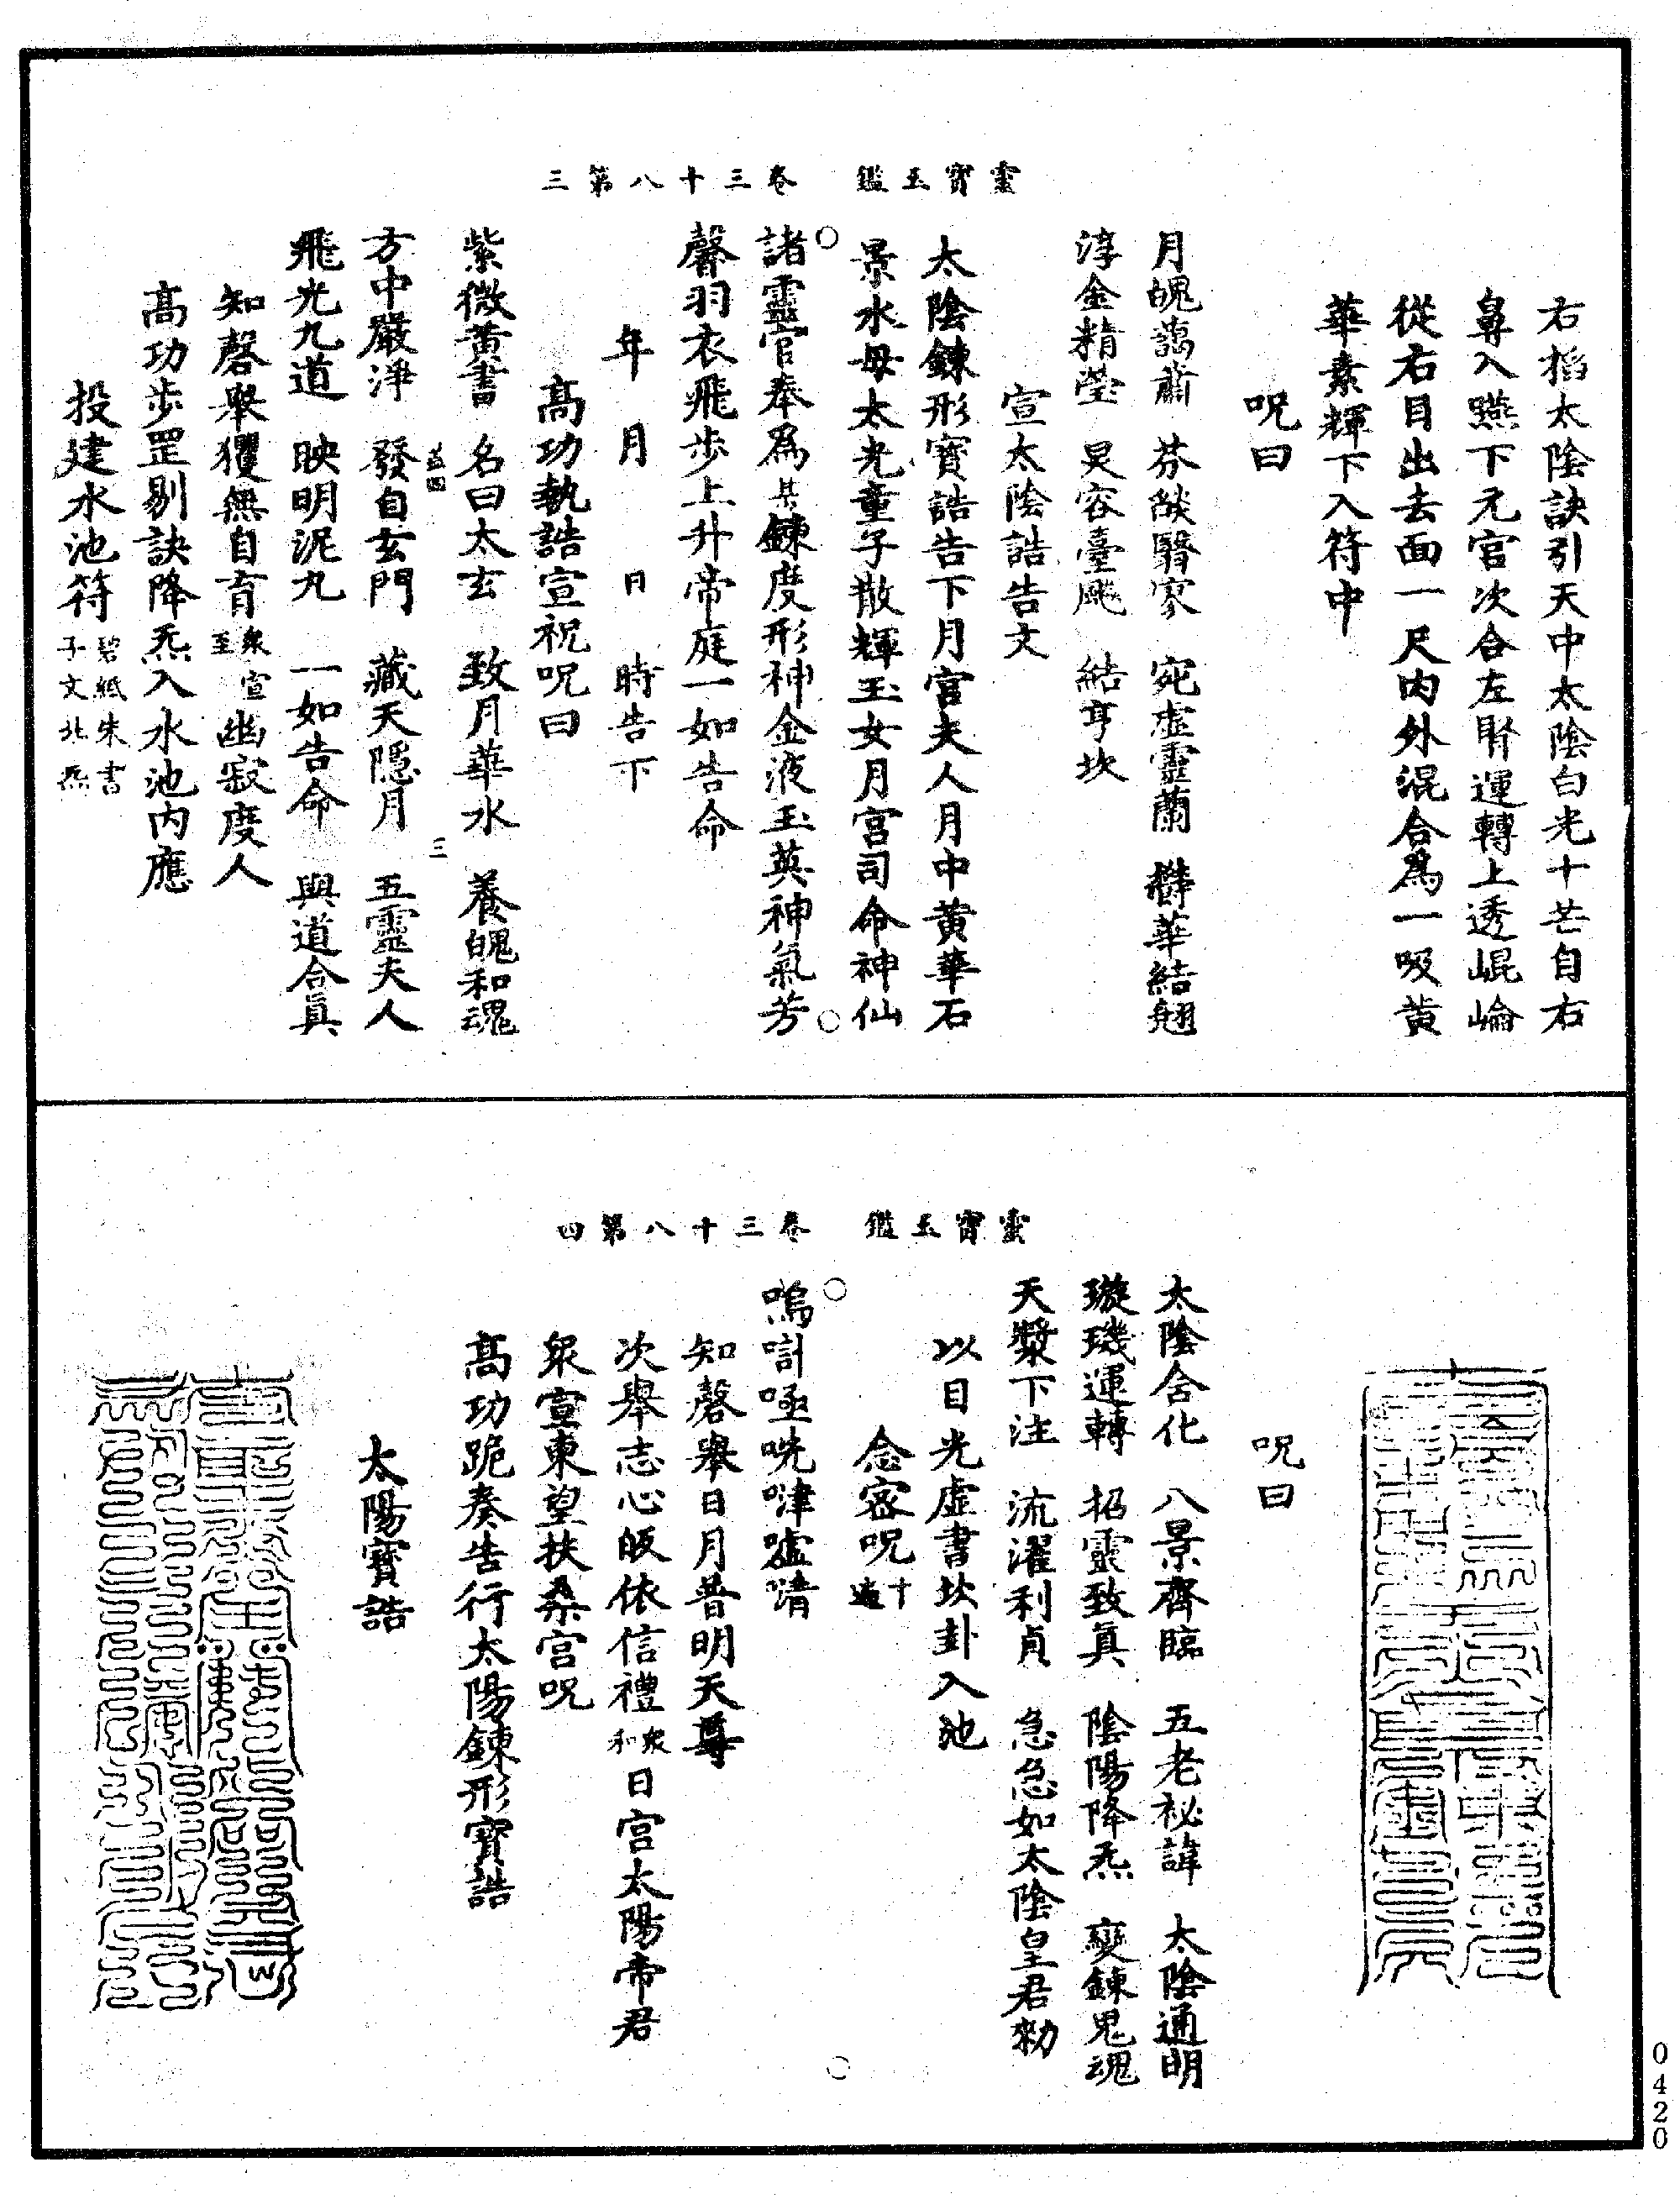 靈寶玉鑑　卷三十八第三
右掐太陰訣引天中太陰白光十芒自右
鼻入嚥下元宮次合左腎運轉上透崐崘
從右目出去面一尺內外混合爲一吸黃
華素輝下入符中
呪曰
月魄譪蕭　芬燄翳寥　宛虛靈蘭　欝華結翹
淳金精瑩　炅容臺飈　結亨坎
宣太陰誥告文
太陰鍊形寶誥告下月宮夫人月中黃華石
景水母太光童子散輝玉女月宮司命神仙
諸靈官奉爲某鍊度形神金液玉英神氣芳
馨羽衣飛步上升帝庭一如告命
年　月　日　時告下
高功執誥宣祝呪曰
紫微黃書　名曰太玄　致月華水　養魄和魂
方中嚴淨　發自玄門　藏天隱月　五靈夫人
三
飛光九道　映明泥丸　一如告命　與道合眞
知磬舉玃無自育衆宣至幽寂度人
高功步罡剔訣降炁入水池內應
投建水池符碧紙朱書子文北炁
靈寶玉鑑　卷三十八第四
呪曰
太陰含化　八景齊臨　五老祕諱　太陰通明
璇璣運轉　招靈致眞　陰陽降炁　變鍊鬼魂
天漿下注　流濯利貞　急急如太陰皇君勑
以目光虛書坎卦入池
念密呪十遍
嗚㖮㗂㖠嘒嚧啨
知磬舉日月普明天尊
次舉志心皈依信禮衆和日宮太陽帝君
衆宣東望扶桑宮呪
高功跪奏告行太陽鍊形寶誥
太陽寶誥
0420